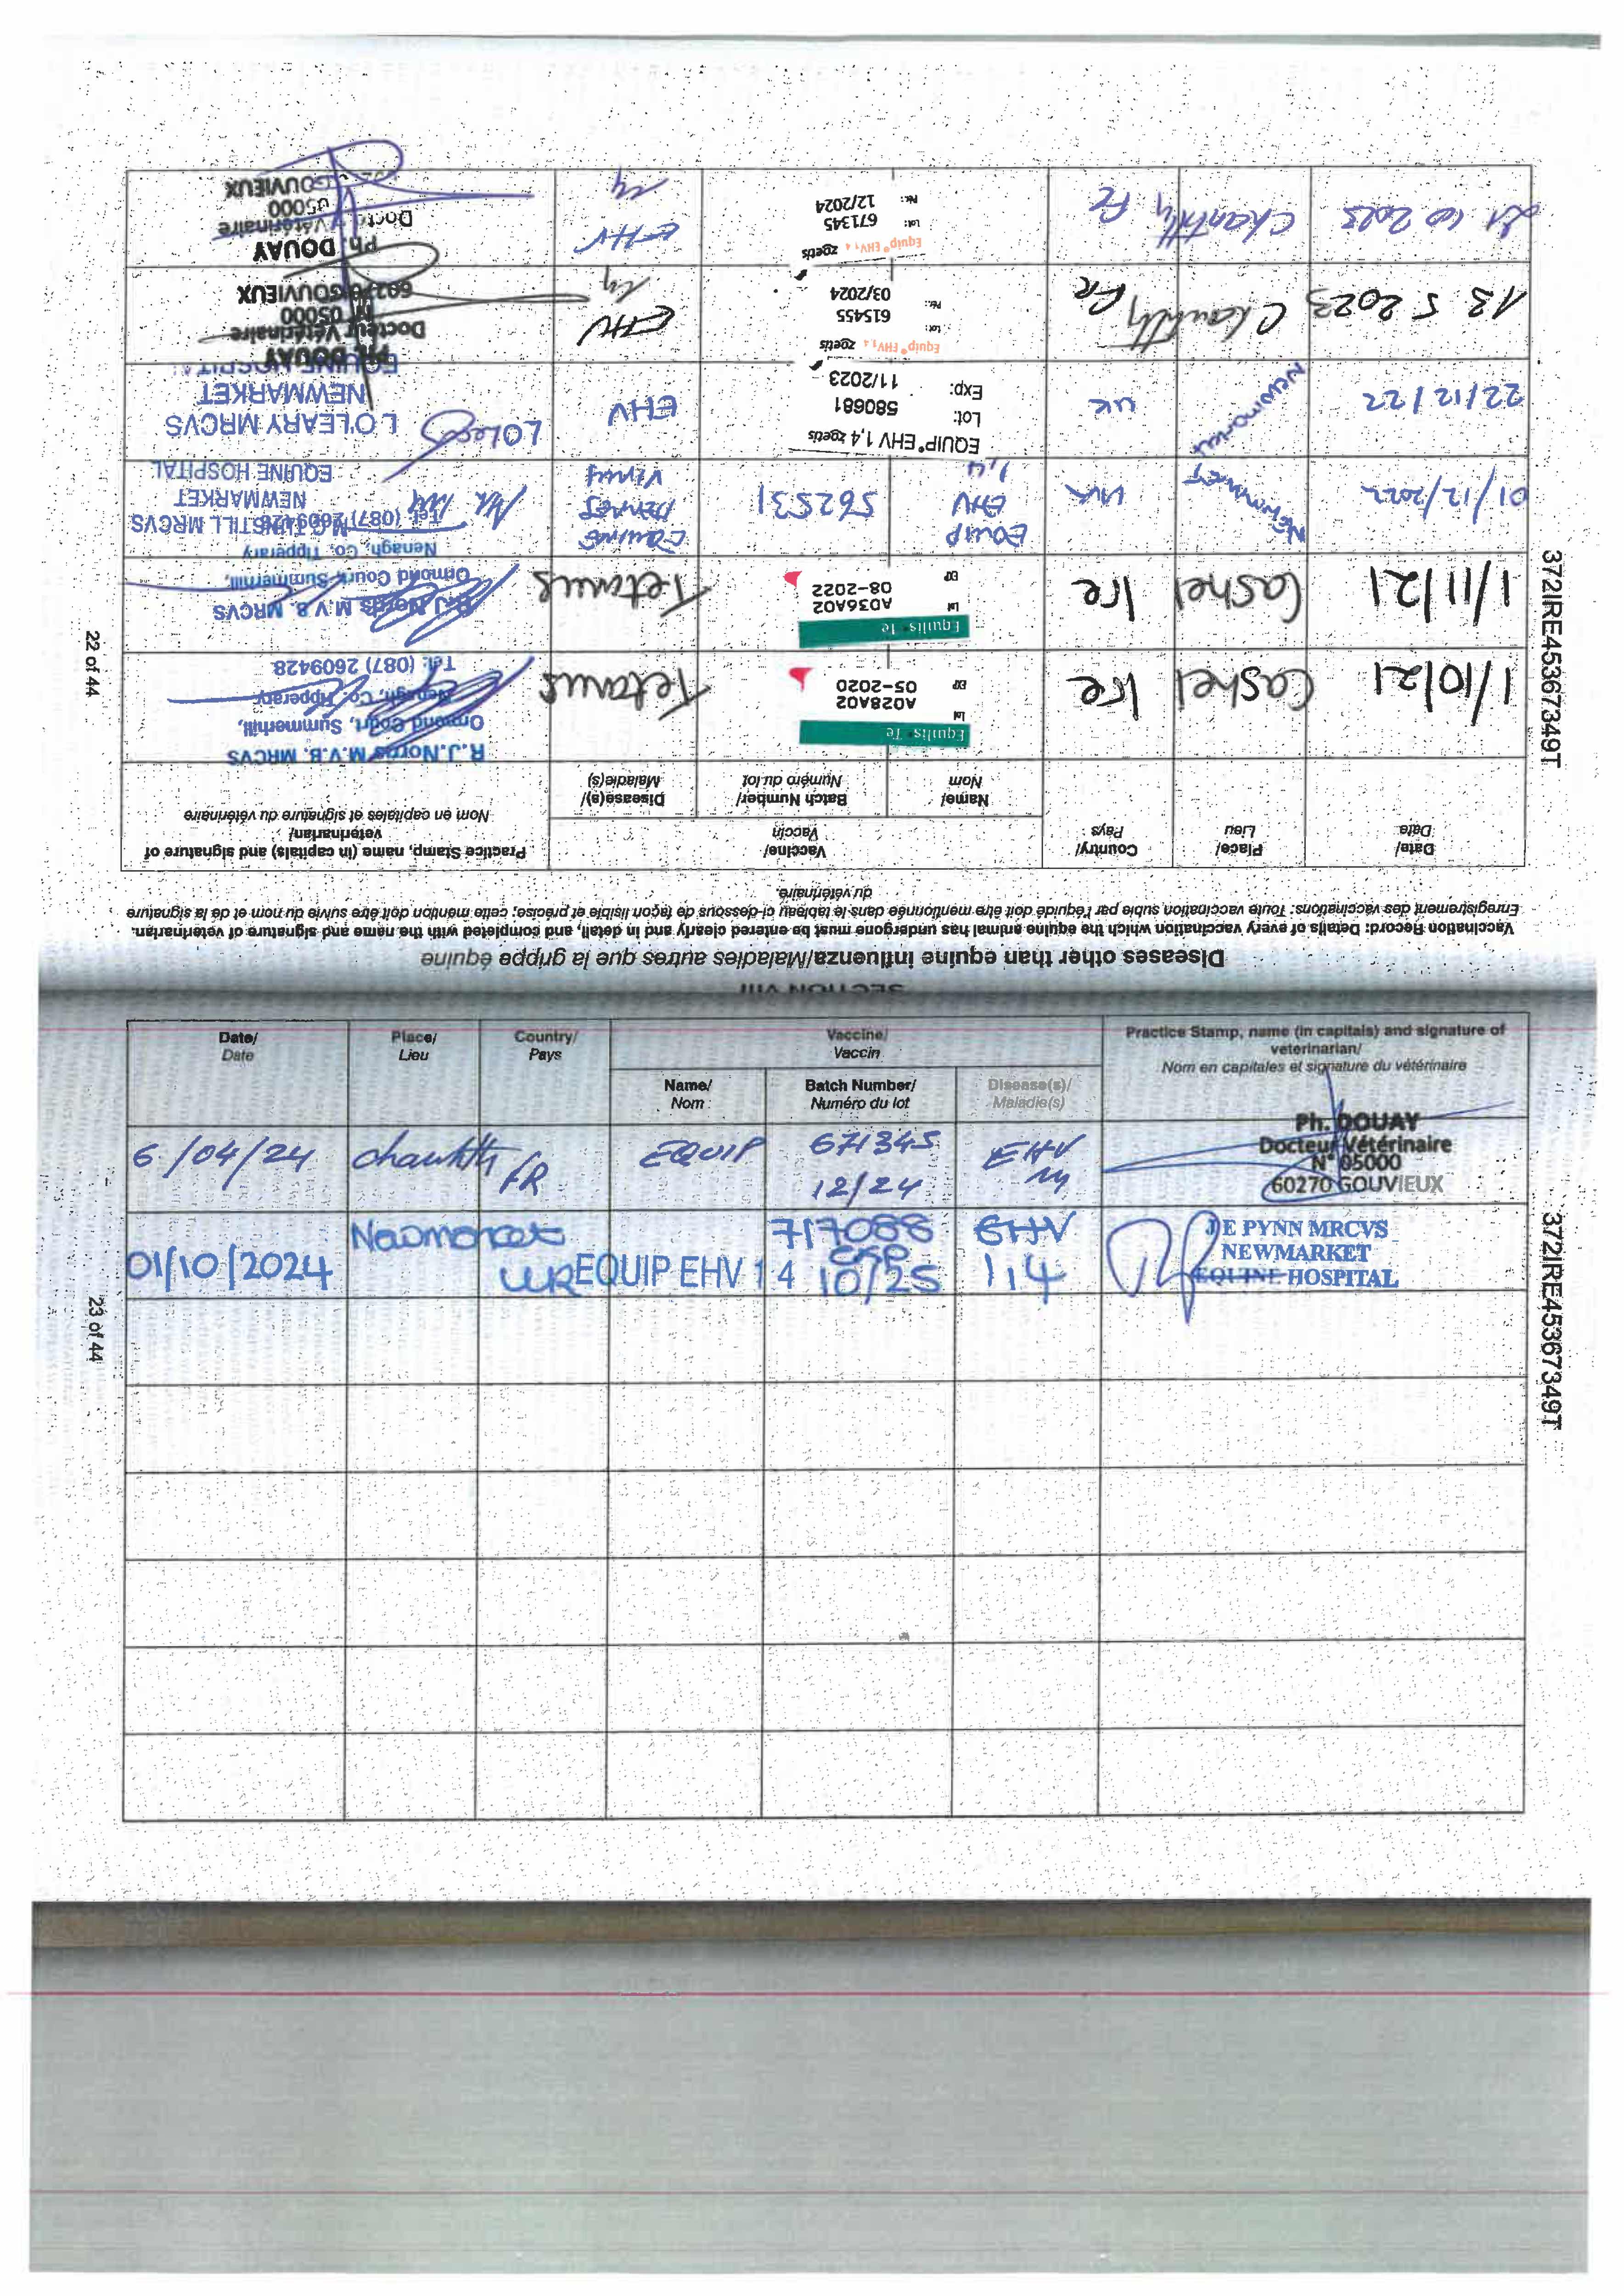 SECTION VIII
Diseases other than equine influenza/Maladies autres que la grippe équine
Vaccination Record: Details of every vaccination which the equine animal has undergone must be entered clearly and in detail, and completed with the name and signature of veterinarian.
Enregistrement des vaccinations: Toute vaccination subie par l'équidé doit être mentionnée dans le tableau ci-dessous de façon lisible et précise; cette mention doit être suivie du nom et de la signature
du vétérinaire.
Date/
Date
Place/
Lieu
Country/
Pays
Vaccine/
Vaccin
Practice Stamp, name (in capitals) and signature of
veterinarian/
Nom en capitales et signature du vétérinaire
Name/
Nom
Batch Number/
Numéro du lot
Disease(s)/
Maladie(s)
1/10/21
Cashel
Ire
Equilis Te
Lot
A028A02
EXP
05-2020
Tetanus
R.J. Norris M.V.B. MRCVS
Ormond Court, Summerhill,
Nenagh, Co. Tipperary
Tel: (087) 2609428
1/11/21
Cashel
Ire
Equilis Te
Lot
A036A02
EXP
08-2022
Tetanus
R.J. Norris M.V.B. MRCVS
Ormond Court, Summerhill,
Nenagh, Co. Tipperary
Tel: (087) 2609428
01/12/2022
Newmarket
UK
EQUIP
EHV
1,4
562531
Equine
Herpes
Virus
MRCVS
NEWMARKET
EQUINE HOSPITAL
22/12/22
Newmarket
UK
EQUIP® EHV 1,4 zoetis
Lot: 580681
Exp: 11/2023
EHV
L O'LEARY MRCVS
NEWMARKET
EQUINE HOSPITAL
13 5 2023
Chantilly
FR
Equip® EHV 1,4 zoetis
Lot: 615455
Pér.: 03/2024
EHV
1,4
Ph. DOUAY
Docteur Vétérinaire
N° 05000
60270 GOUVIEUX
2023
Chantilly
FR
Equip® EHV 1,4 zoetis
Lot: 671345
Pér.: 12/2024
EHV
1,4
Ph. DOUAY
Docteur Vétérinaire
05000
GOUVIEUX
22 of 44
372IRE45367349T
Date/
Date
Place/
Lieu
Country/
Pays
Vaccine/
Vaccin
Practice Stamp, name (in capitals) and signature of
veterinarian/
Nom en capitales et signature du vétérinaire
Name/
Nom
Batch Number/
Numéro du lot
Disease(s)/
Maladie(s)
6/04/24
Chantilly
FR
EQUIP
671345
12/24
EHV
1,4
Ph. DOUAY
Docteur Vétérinaire
N° 05000
60270 GOUVIEUX
01/10/2024
Newmarket
UK
EQUIP EHV 1 4
717088
EXP
10/25
EHV
1,4
J E PYNN MRCVS
NEWMARKET
EQUINE HOSPITAL
23 of 44
372IRE45367349T